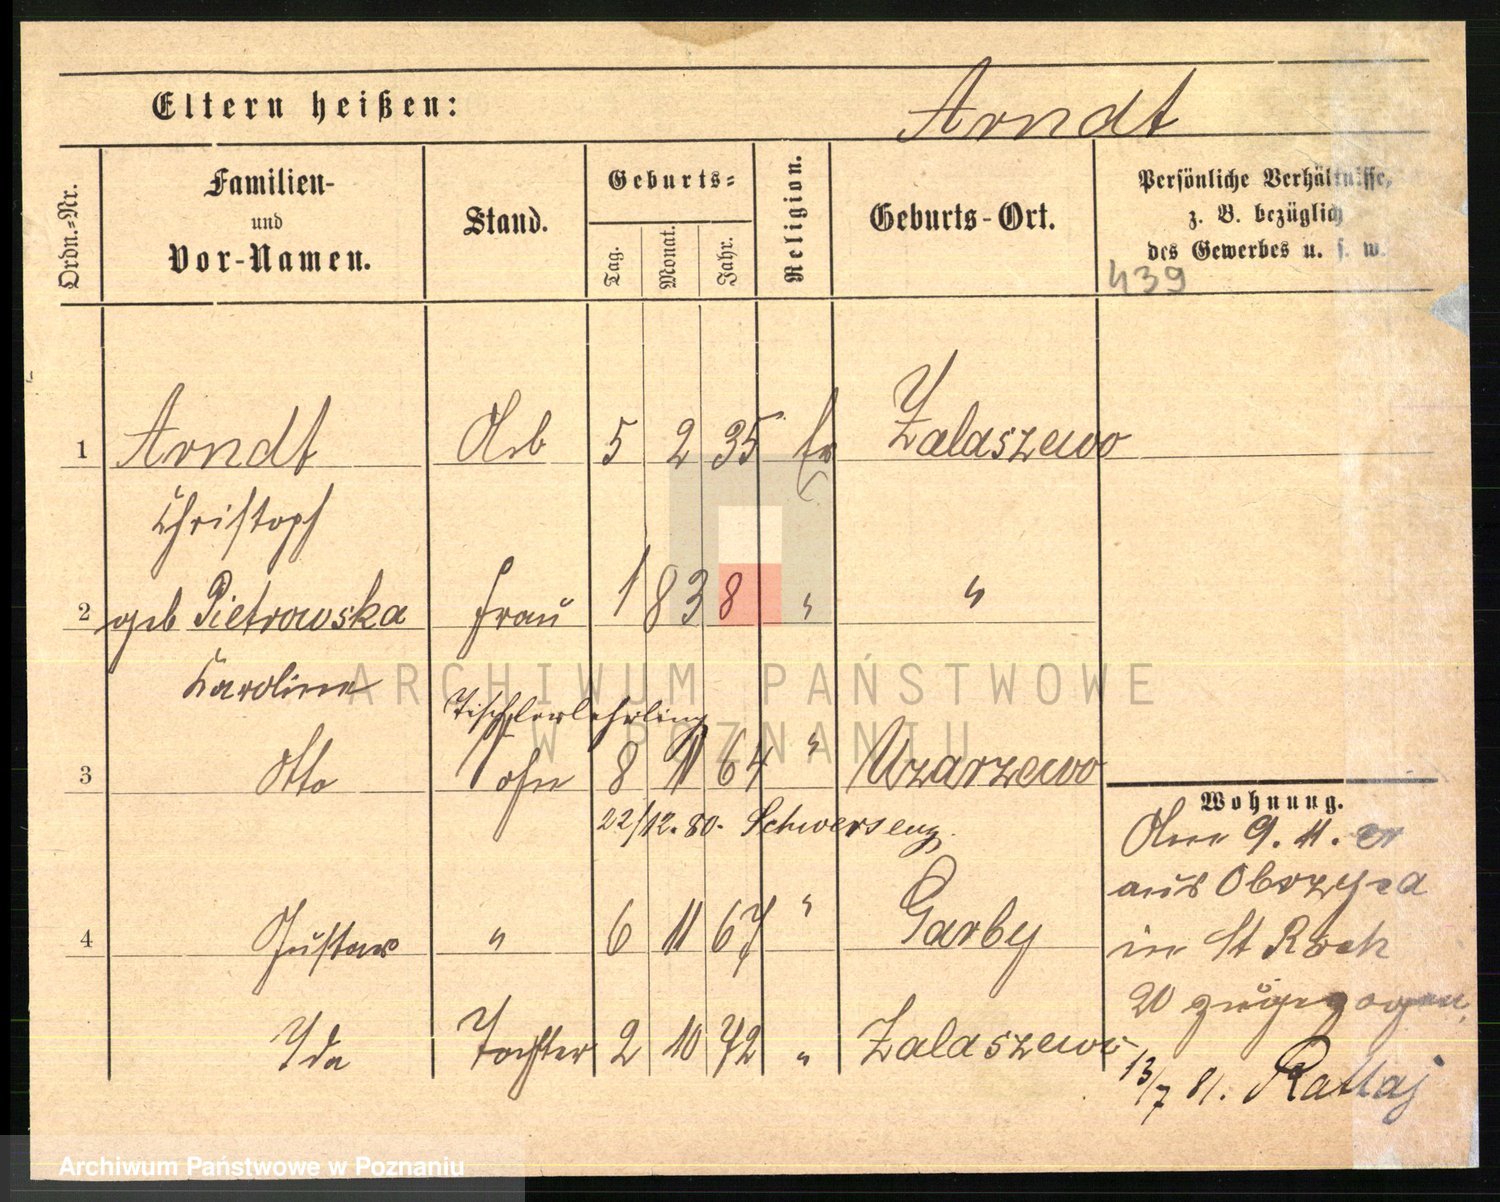 Eltern heißen: Arndt
Ordn.=Nr.
Familien-
und
Vor-Namen.
Stand.
Geburts=
Tag.
Monat.
Jahr.
Religion.
Geburts-Ort.
Persönliche Verhältnisse,
z. B. bezüglich
des Gewerbes u. s. w.
439
1 Arndt Arb 5 2 35 ev Zalaszewo
Christoph
2 geb Pietrowska Frau 1838 " "
Karoline
Tischlerlehrling
3 Otto Sohn 8 11 64 " Uzarzewo
22/12.80. Schwersenz.
4 Gustav " 6 11 67 " Garby
Ida Tochter 2 10 72 " Zalaszewo
Wohnung.
Am 9. 11. er
aus Obrzyca
in St Roch
20 zugezogen.
13/7 81. Rattaj
ARCHIWUM PAŃSTWOWE
W POZNANIU
Archiwum Państwowe w Poznaniu